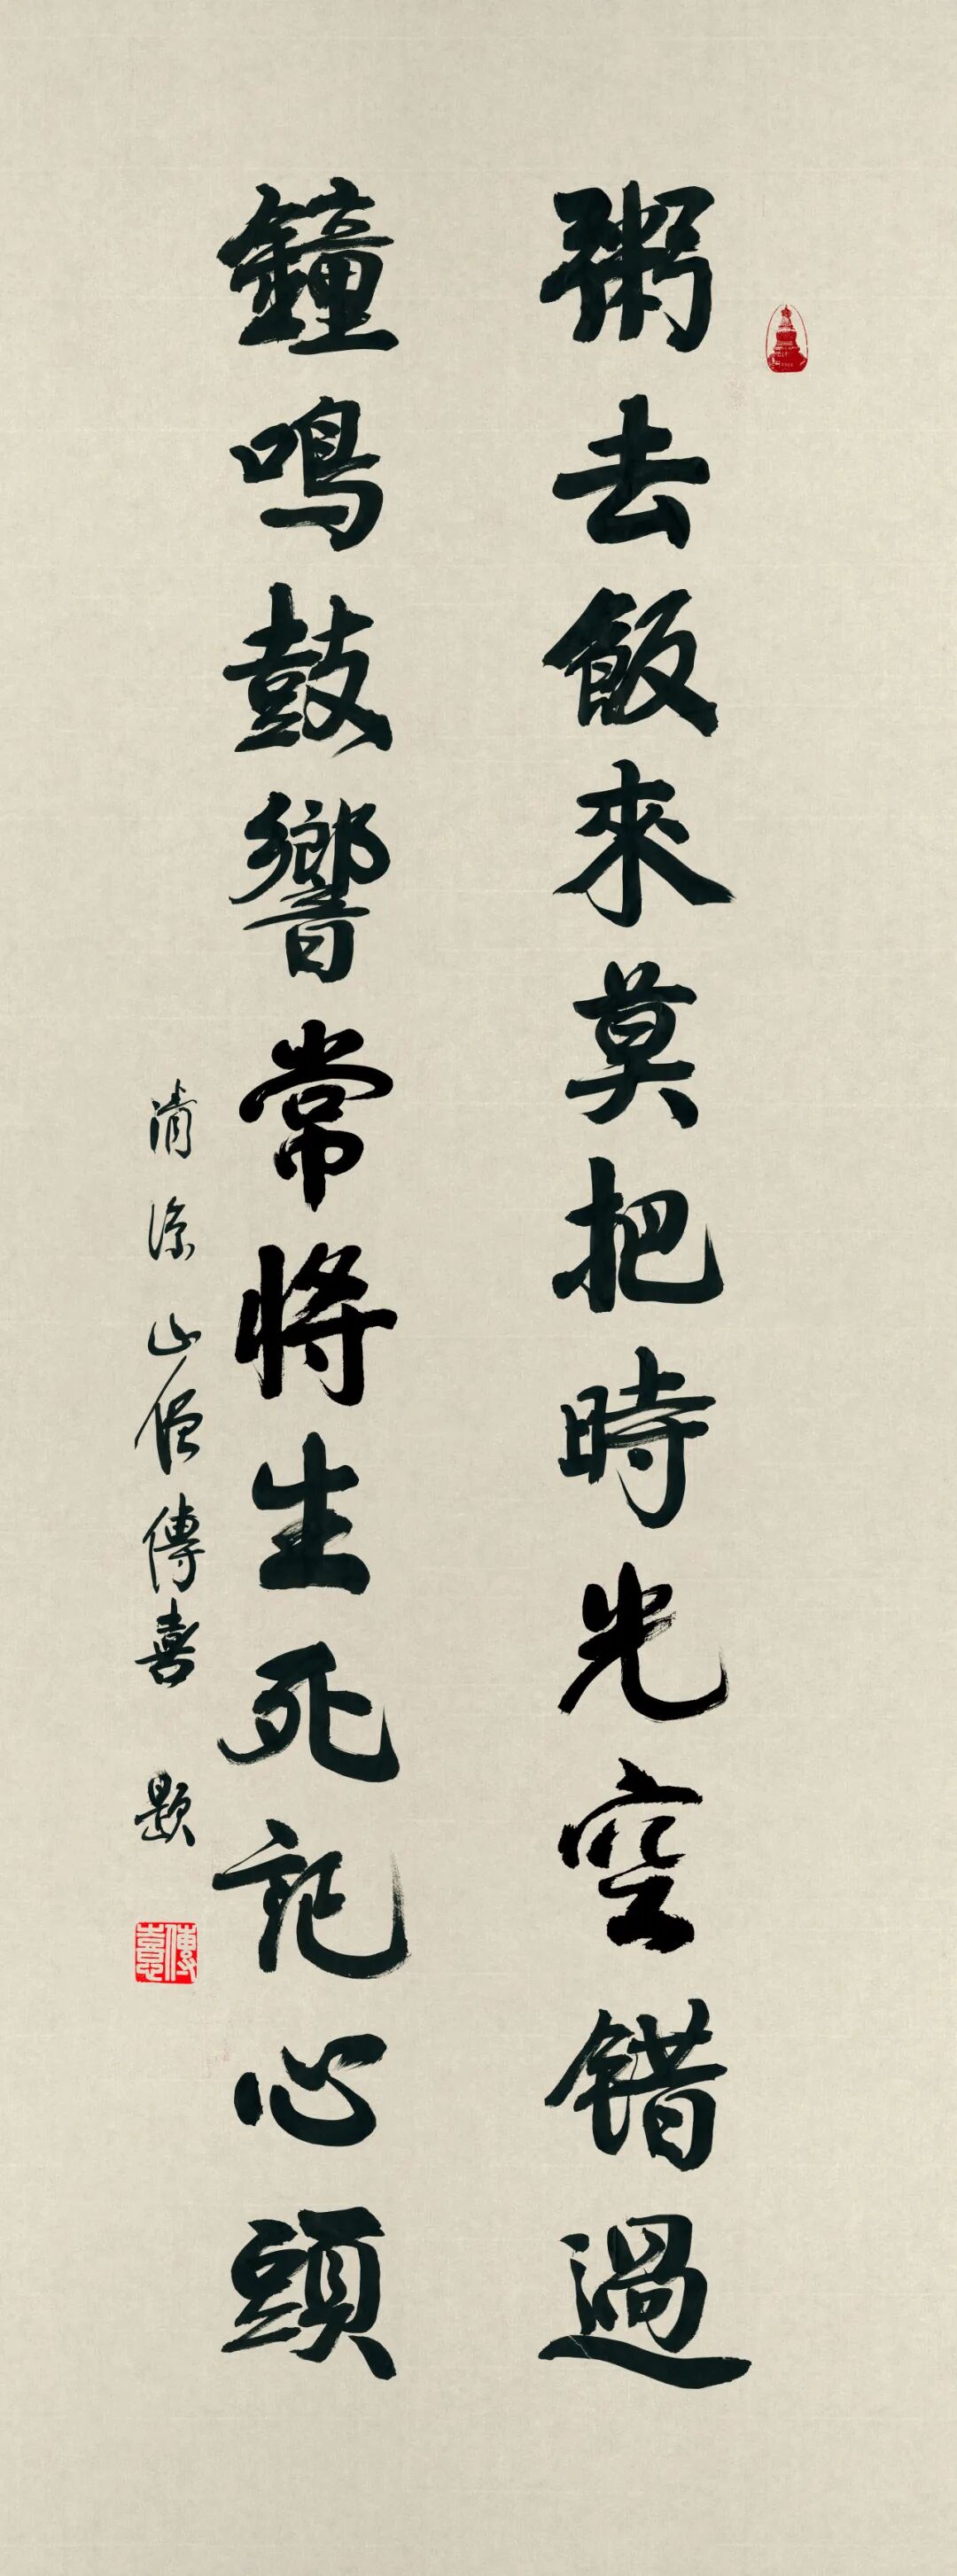 粥去飯來莫把時光空錯過
鐘鳴鼓響常將生死記心頭
清涼山僧傳喜 題
傳喜